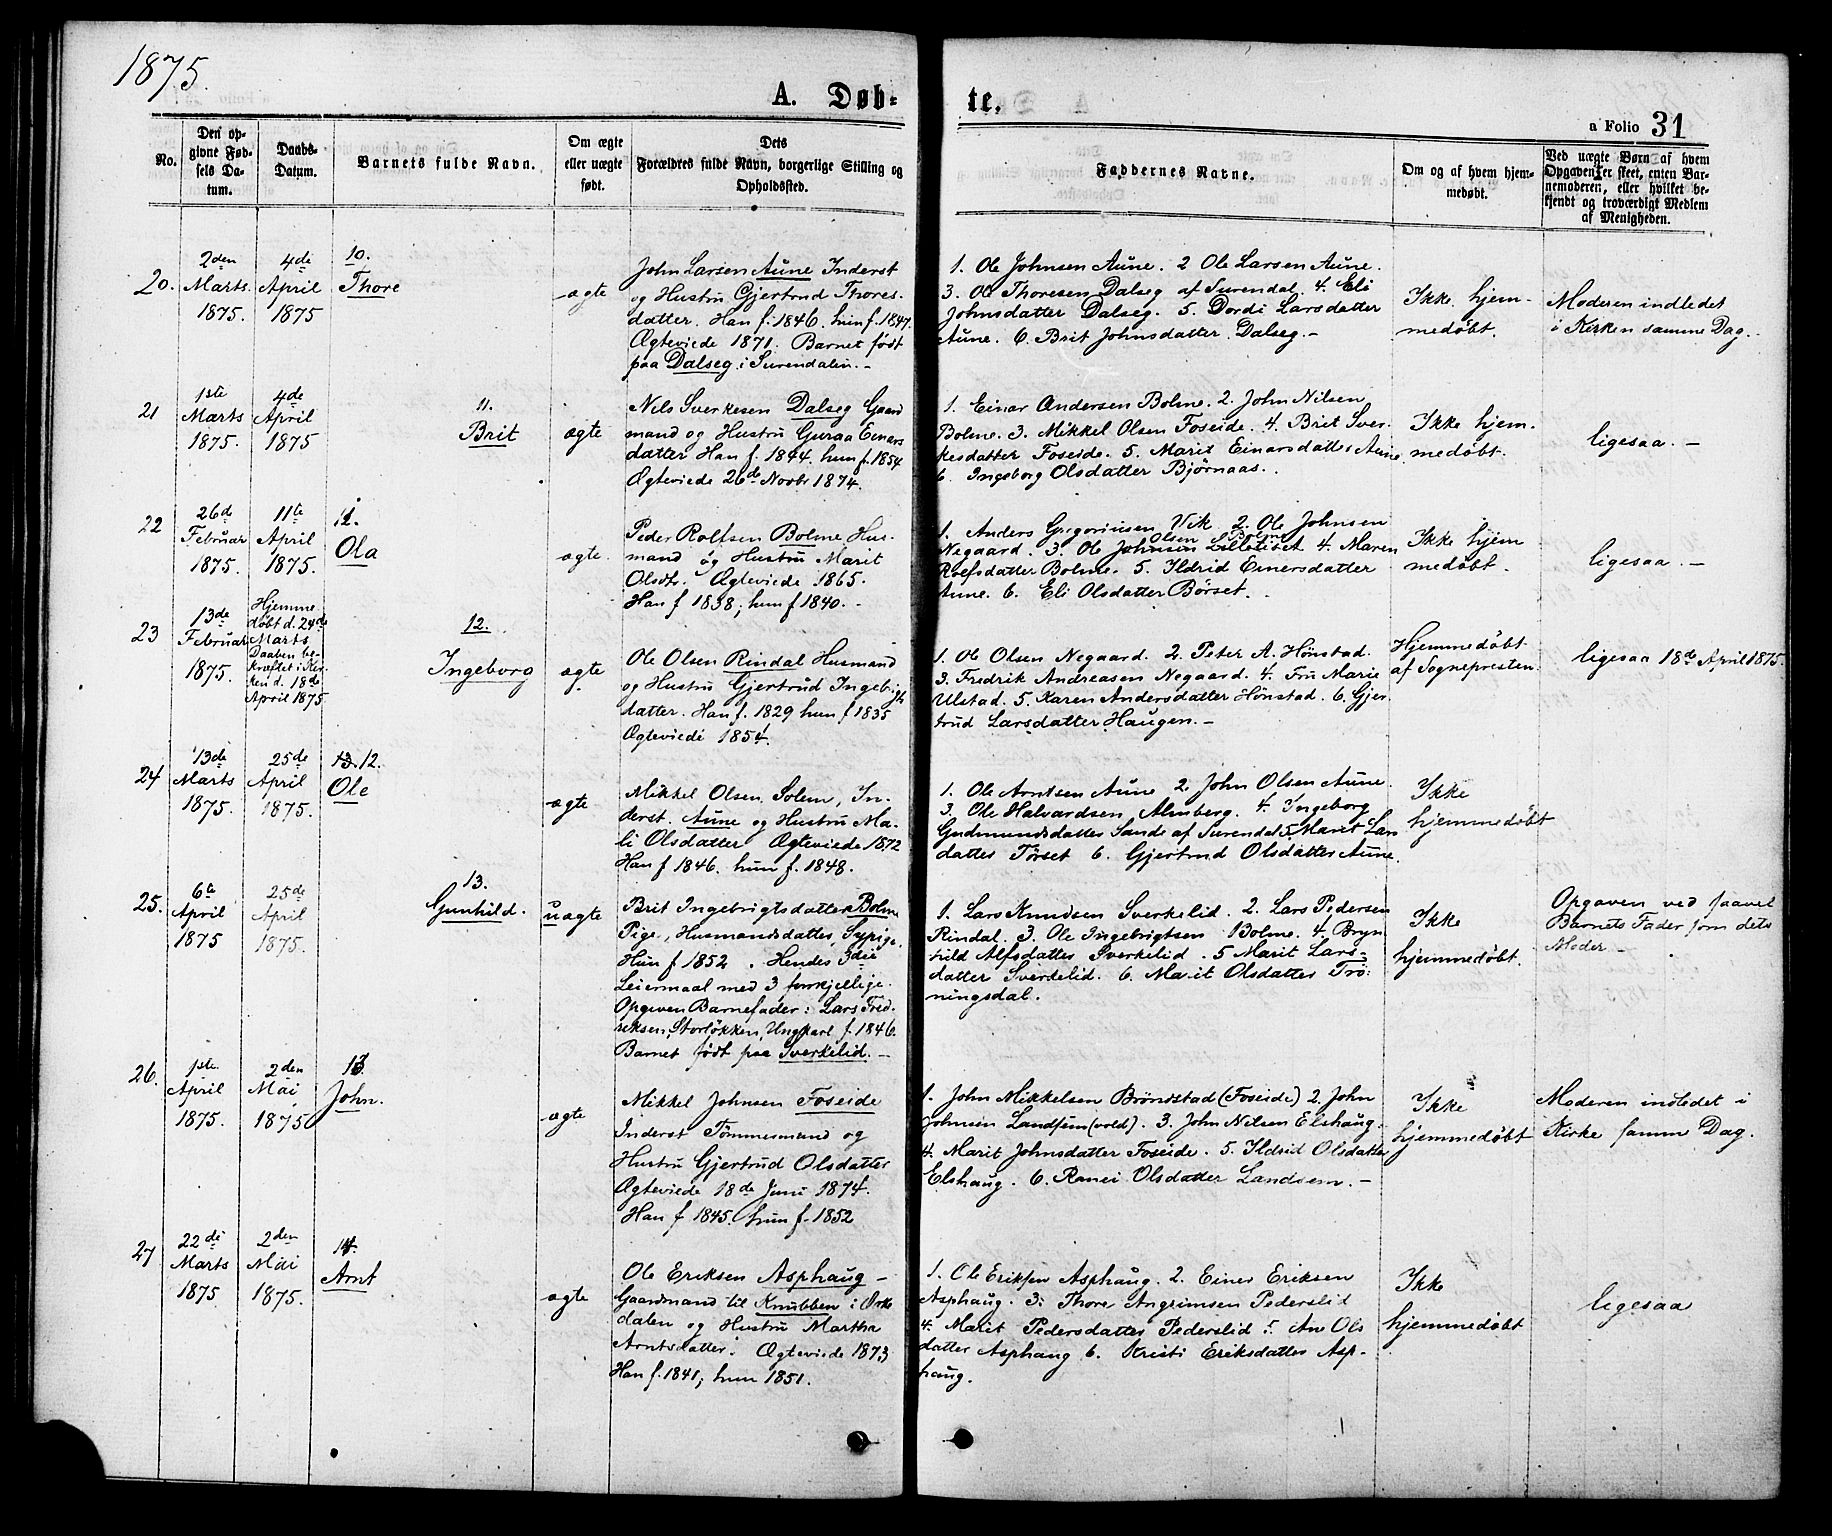 1875.
A. Døb-
te.
a Folio 31
No.
Den op-
givne Fød-
sels Da-
tum.
Daabs-
Datum.
Barnets fulde Navn.
Om ægte
eller uægte
født.
Dets
Forældres fulde Navn, borgerlige Stilling og
Opholdssted.
Faddernes Navne.
Om og af hvem hjem-
medøbt.
Ved uægte Børn af hvem
Opgaven er skeet, enten Bar-
nemoderen, eller hvilket be-
kjendt og troværdigt Medlem
af Menigheden.
20.
2den
Marts.
1875.
4de
April
1875
10.
Thore
ægte
John Larsen Aune Inderst
og Hustru Gjertrud Thores-
datter. Han f. 1846. hun f. 1847.
Ægteviede 1871. Barnet født
paa Dalseg i Surendalen. -
1. Ole Johnsen Aune. 2 Ole Larsen Aune.
3. Ole Thoresen Dalseg af Surendal. 4. Eli
Johnsdatter Dalseg. 5. Dordi Larsdatter
Aune. 6. Brit Johnsdatter Dalseg. -
Ikke hjem-
medøbt.
Moderen indledet
i Kirken samme Dag.
21
1ste
Marts
1875.
4de
April
1875
11.
Brit
ægte
Nils Sverkesen Dalseg Gaard
mand og Hustru Guraa Einars
datter Han f. 1844. hun f. 1854
Ægteviede 26de Novbr 1874.
1. Einar Andersen Bolme. 2. John Nilsen
Bolme. 3. Mikkel Olsen Foseide. 4. Brit Sver-
kesdatter Foseide. 5. Marit Einarsdatter Aune.
6. Ingeborg Olsdatter Bjørnaas.
Ikke hjem-
medøbt.
ligesaa. -
22
26d
Februar
1875.
11te
April
1875.
11.
Ola
ægte.
Peder Rolfsen Bolme Hus-
mand og Hustru Marit
Olsdtr. Ægteviede 1865.
Han f 1838; hun f 1840. -
1. Anders Gregoriusen Vik. 2. Ole Johnsen
Olsen Bolme
Negaard. 3. Ole Johnsen Lilletibet 4. Maren
Rolfsdatter Bolme. 5. Ildrid Einersdatter
Aune. 6. Eli Olsdatter Børset.
Ikke hjem
medøbt.
ligesaa. -
23
13de
Februar
1875.
Hjemme
døbt d. 24de
Marts
Daaben be-
kræftet i Kir-
ken d. 18de
April 1875
12.
Ingeborg
ægte
Ole Olsen Rindal Husmand
og Hustru Gjertrud Ingebrigts
datter. Han f. 1829 hun f 1835
Ægteviede 1854.
1. Ole Olsen Negaard. 2. Peter A. Hönstad.
3. Fredrik Andreasen Negaard. 4. Fru Marie
Ulstad. 5. Karen Andersdatter Hönstad. 6. Gjer
trud Larsdatter Haugen. -
Hjemmedøbt
af Sognepresten.
ligesaa 18de April 1875.
24
13de
Marts
1875.
25de
April
1875.
13. 12.
Ole
ægte
Mikkel Olsen Solem, In-
derst. Aune og Hustru Ma-
li Olsdatter Ægteviede 1872
Han f 1846. hun f. 1848.
1. Ole Arntsen Aune 2. John Olsen Aune.
3. Ole Halvardsen Almberg. 4. Ingeborg
Gudmundsdatter Sande af Surendal 5. Marit Lars
datter Törset 6. Gjertrud Olsdatter Aune.
Ikke
hjemmedøbt
25.
6te
April
1875
25de
April
1875.
13.
Gunhild.
uægte
Brit Ingebrigtsdatter Bolme
Pige, Husmandsdatter, Sypige.
Hun f 1852. Hendes 3die
Leiermaal med 3 forskjellige.
Opgiven Barnefader: Lars Fred-
riksen, Storløkken, Ungkarl, f. 1846.
Barnet født paa Sverkelid. -
1. Lars Knudsen Sverkelid. 2. Lars Pedersen
Rindal. 3. Ole Ingebrigtsen Bolme. 4. Bryn
hild Alfsdatter Sverkelid. 5 Marit Lars-
datter Sverkelid. 6. Marit Olsdatter Trö-
ningsdal.
Ikke
hjemmedøbt.
Opgaven ved saavel
Barnets Fader som dets
Moder -
26.
1ste
April
1875.
2den
Mai
1875
13.
John.
ægte
Mikkel Johnsen Foseide
Inderst Tømmesmand og
Hustru Gjertrud Olsdatter
Ægteviede 18de Juni 1874.
Han f 1845. hun f. 1852
1. John Mikkelsen Bröndstad (Foseide) 2. John
Johnsen Landsem (vold). 3. John Nilsen Elshaug.
4. Marit Johnsdatter Foseide. 5. Ildrid Olsdatter
Elshaug. 6. Ranei Olsdatter Landsem. -
Ikke
hjemmedøbt
Moderen indledet i
Kirke samm Dag.
27
22de
Marts
1875
2den
Mai
1875.
14.
Arnt
ægte
Ole Eriksen Asphaug -
Gaardmand til Knubben i Ork
dalen og Hustru Martha
Arntsdatter. Ægteviede 1873
Han f. 1841; hun 1851.
1. Ole Eriksen Asphaug. 2. Einer Eriksen
Asphaug. 3. Thore Angrimsen Pederslid
4. Marit Pedersdatter Pederslid 5. An Ols
datter Asphaug 6. Kristi Eriksdatter Asp-
haug.
Ikke
hjemmedøbt
ligesaa